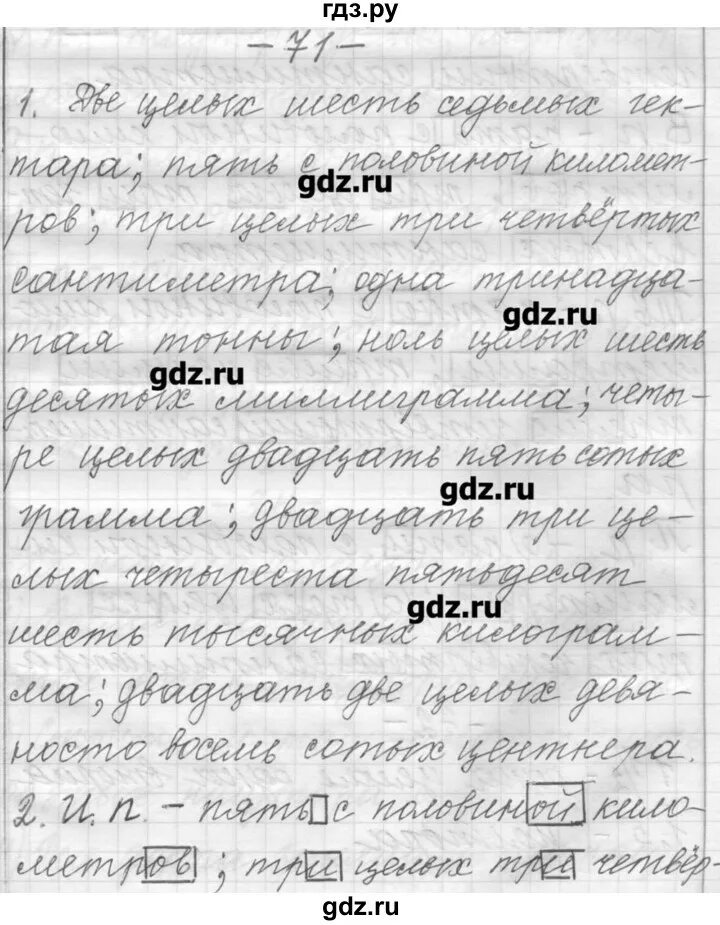 гдз.ру
- 71 -
1. Две целых шесть седьмых гек-
тара; пять с половиной километ-
gdz.ru
ров; три целых три четвёртых
сантиметра; одна тринадца-
gdz.ru
тая тонны; ноль целых шесть
gdz.ru
десятых миллиграмма; четы-
ре целых двадцать пять сотых
gdz.ru
грамма; двадцать три це-
лых четыреста пятьдесят
gdz.ru
шесть тысячных килограм-
ма; двадцать две целых девя-
носто восемь сотых центнера.
2. И. п. - пять с половиной кило-
метров; три целых три четвёр-
gdz.ru